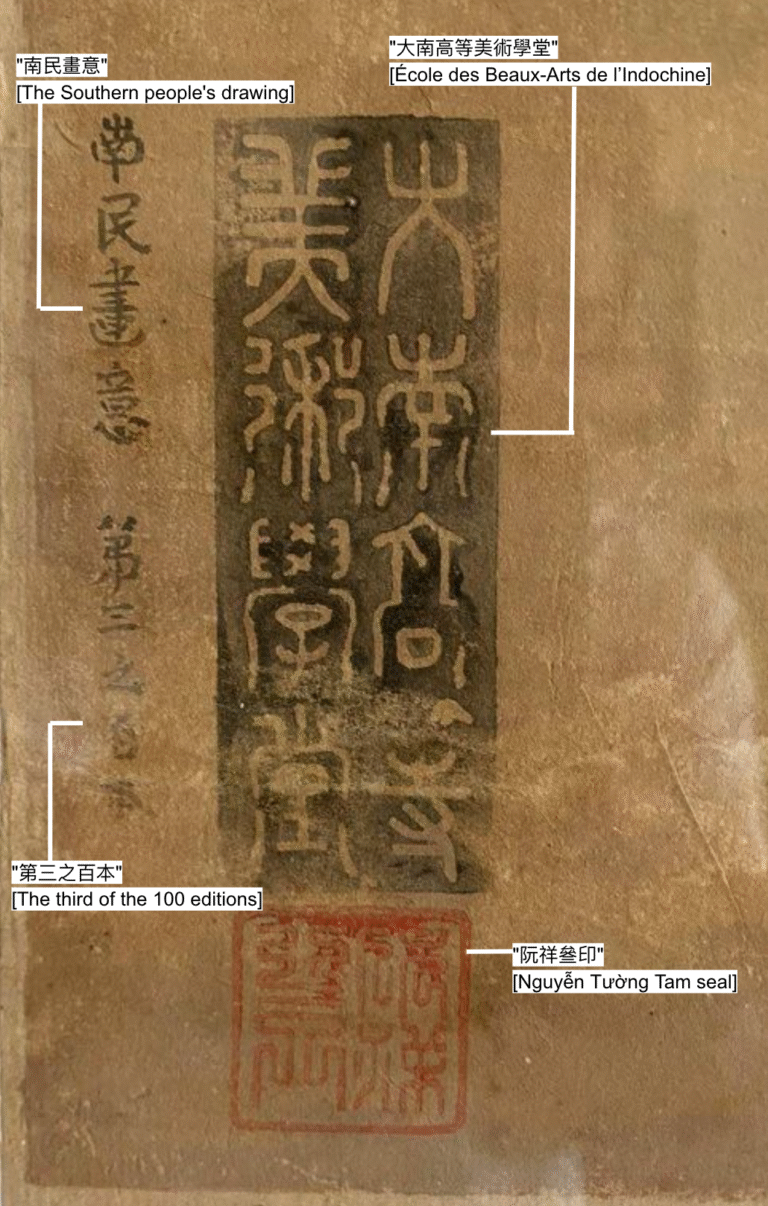 "南民畫意"
[The Southern people's drawing]
"大南高等美術學堂"
[École des Beaux-Arts de l'Indochine]
大南高等
美術學堂
南民畫意 第三之百本
"第三之百本"
[The third of the 100 editions]
"阮祥叄印"
[Nguyễn Tường Tam seal]
阮祥叄印